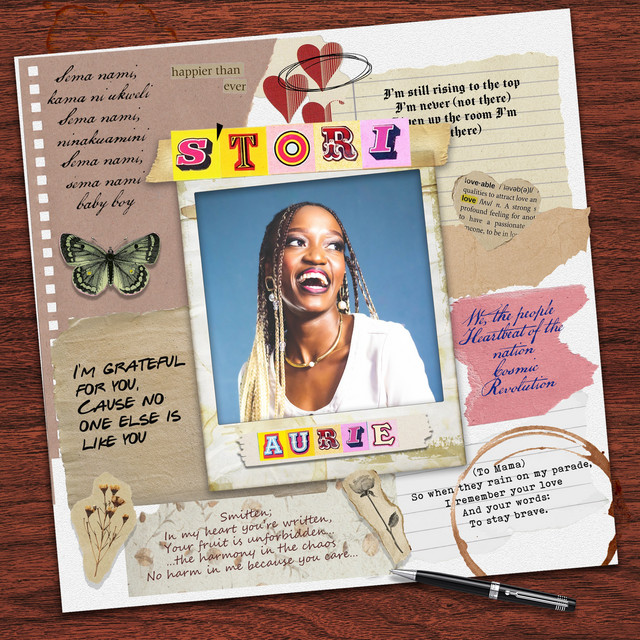 Sema nami,
kama ni ukweli
Sema nami,
ninakuamini
Sema nami,
sema nami
baby boy
happier than
ever
I'm still rising to the top
I'm never (not there)
up the room I'm
there)
S'TORI
love·able / lovəb(ə)l/
qualities to attract love an
love /lʌv/ n. A strong s
profound feeling for
to have a passionate
to be in
We, the people
Heartbeat of the
nation
Cosmic
Revolution
I'M GRATEFUL
FOR YOU,
CAUSE NO
ONE ELSE IS
LIKE YOU
AURIE
(To Mama)
So when they rain on my parade,
I remember your love
And your words:
To stay brave.
Smitten,
In my heart you're written,
Your fruit is unforbidden...
...the harmony in the chaos
No harm in me because you care...